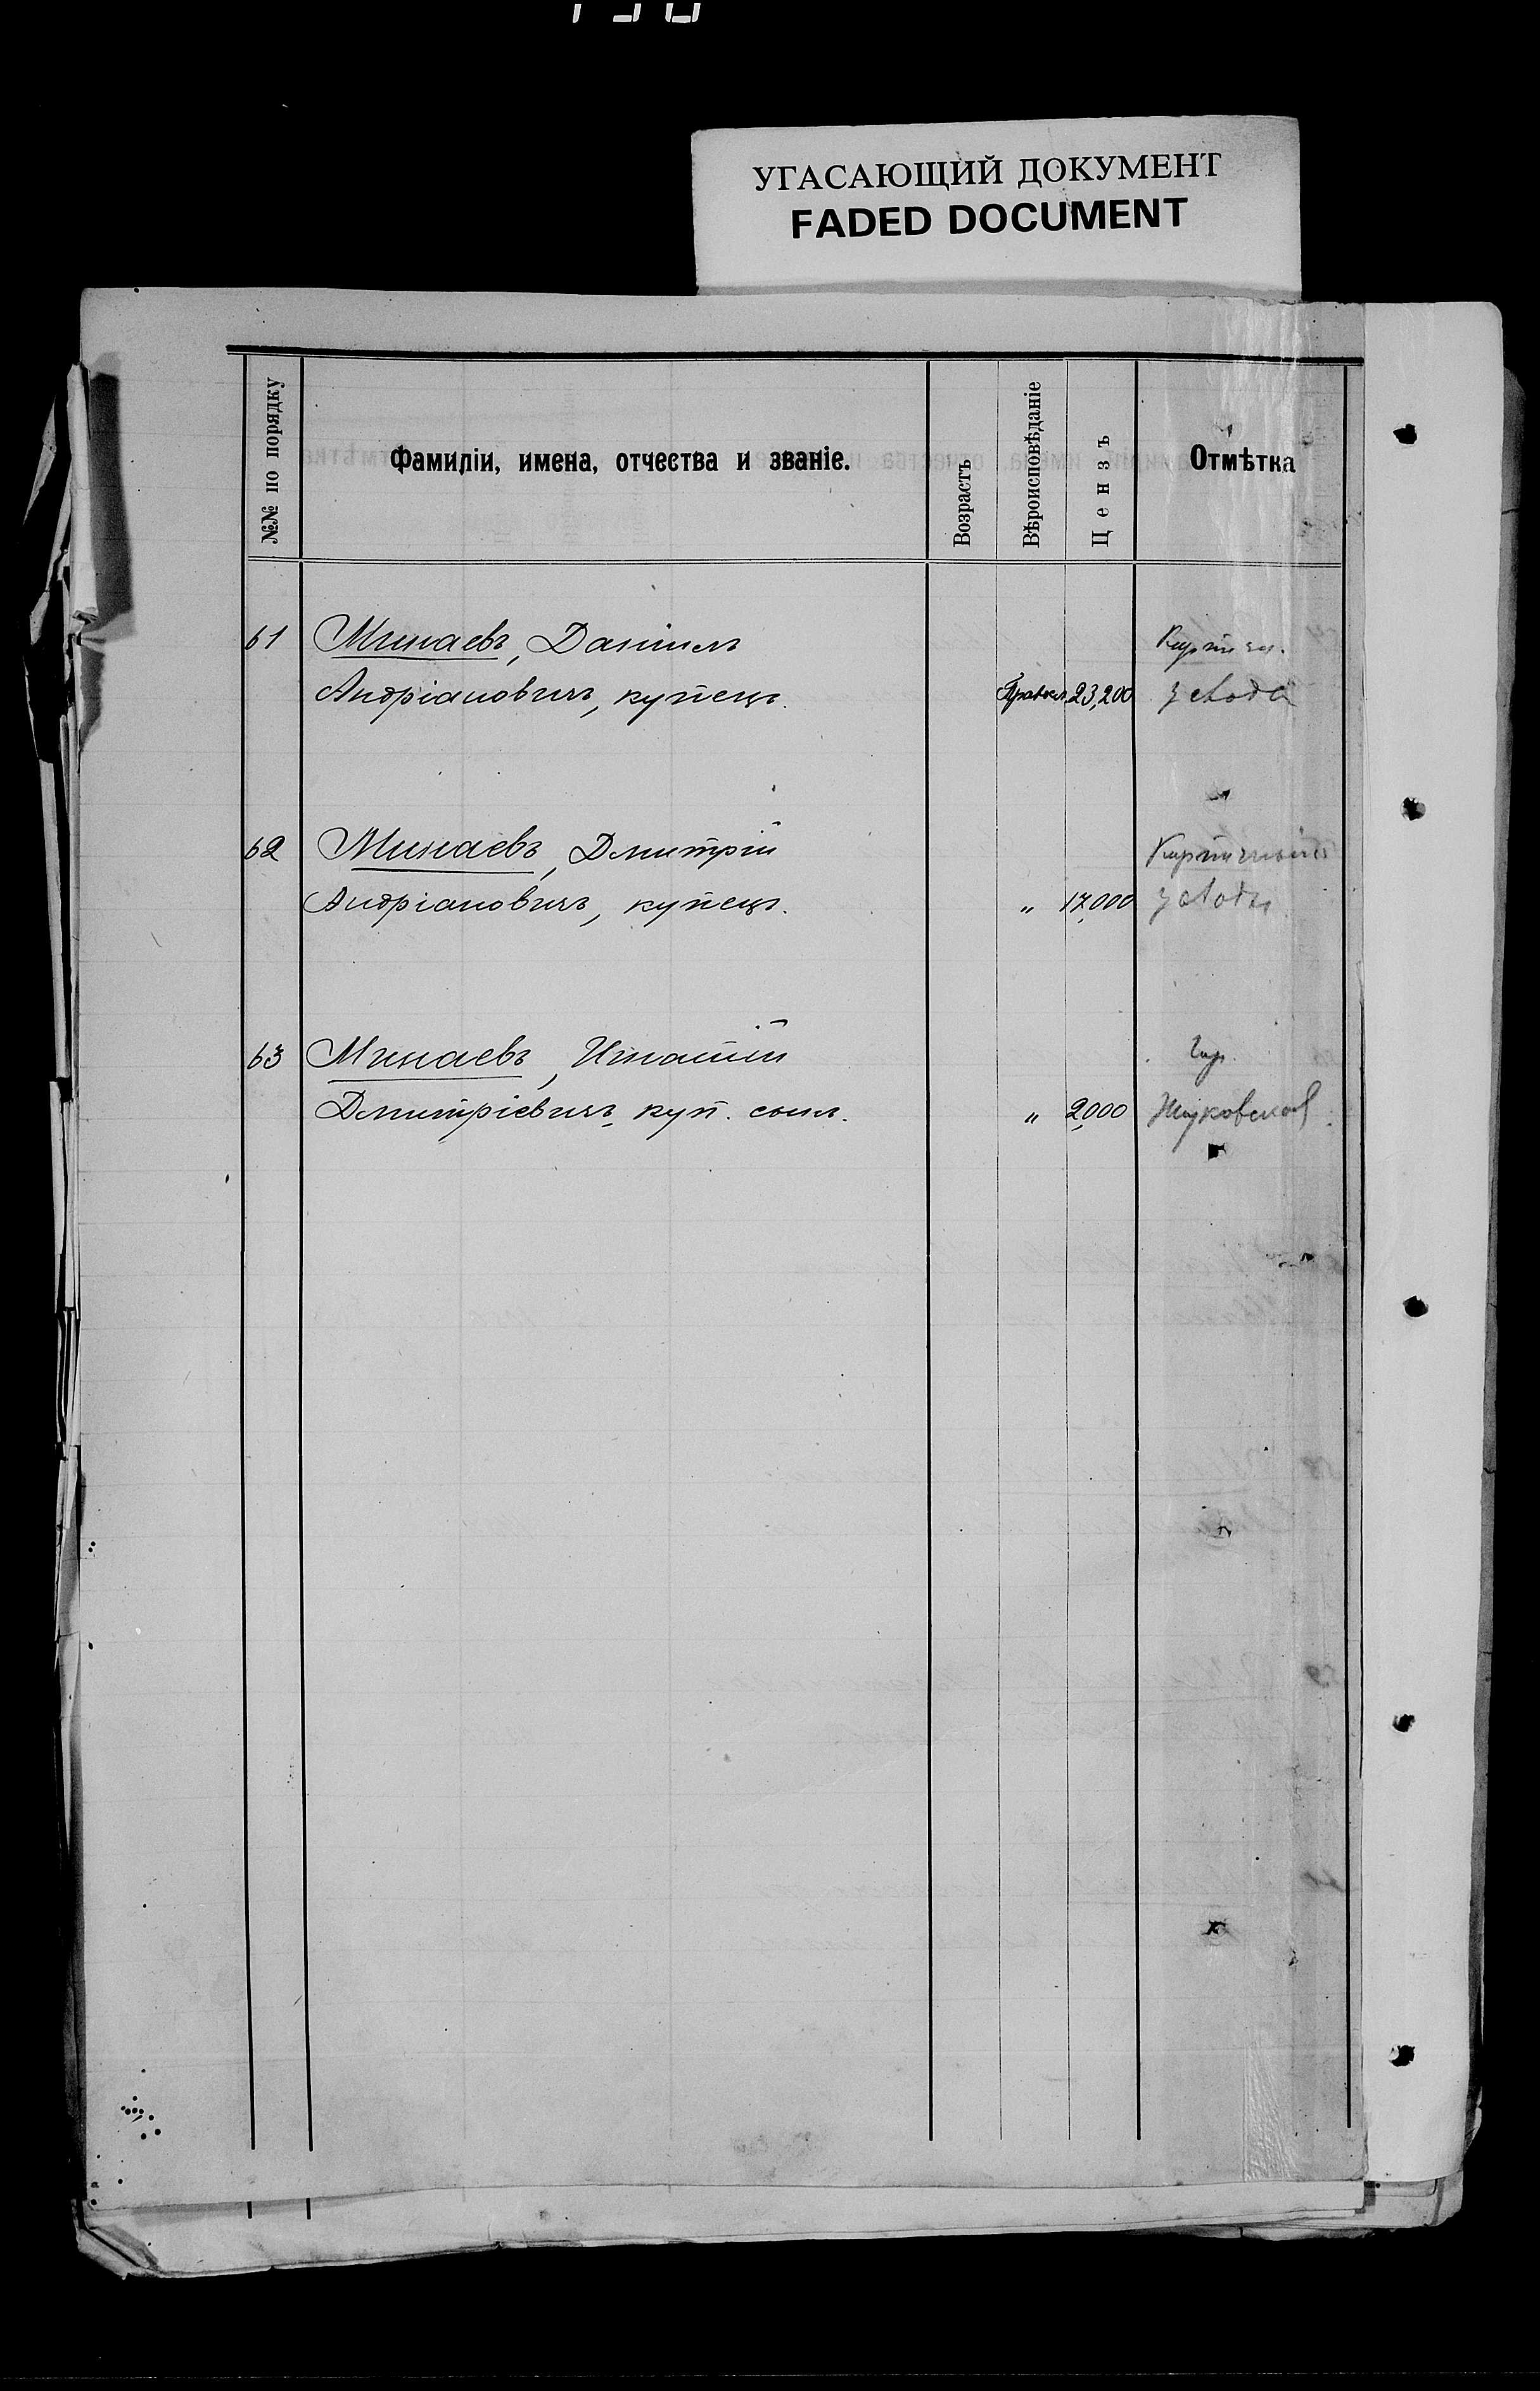 УГАСАЮЩИЙ ДОКУМЕНТ
FADED DOCUMENT
№№ по порядку
Фамиліи, имена, отчества и званіе.
Возрастъ
Вѣроисповѣданіе
Цензъ
Отмѣтка
61 Минаевъ, Даніилъ Кирпичн.
Андріановичъ, купецъ. Правосл. 23,200 завода
62 Минаевъ, Дмитрій Кирпичный
Андріановичъ, купецъ. " 17,000
63 Минаевъ, Игнатій
Дмитріевичъ, куп. сынъ. " 2,000 Жуковской